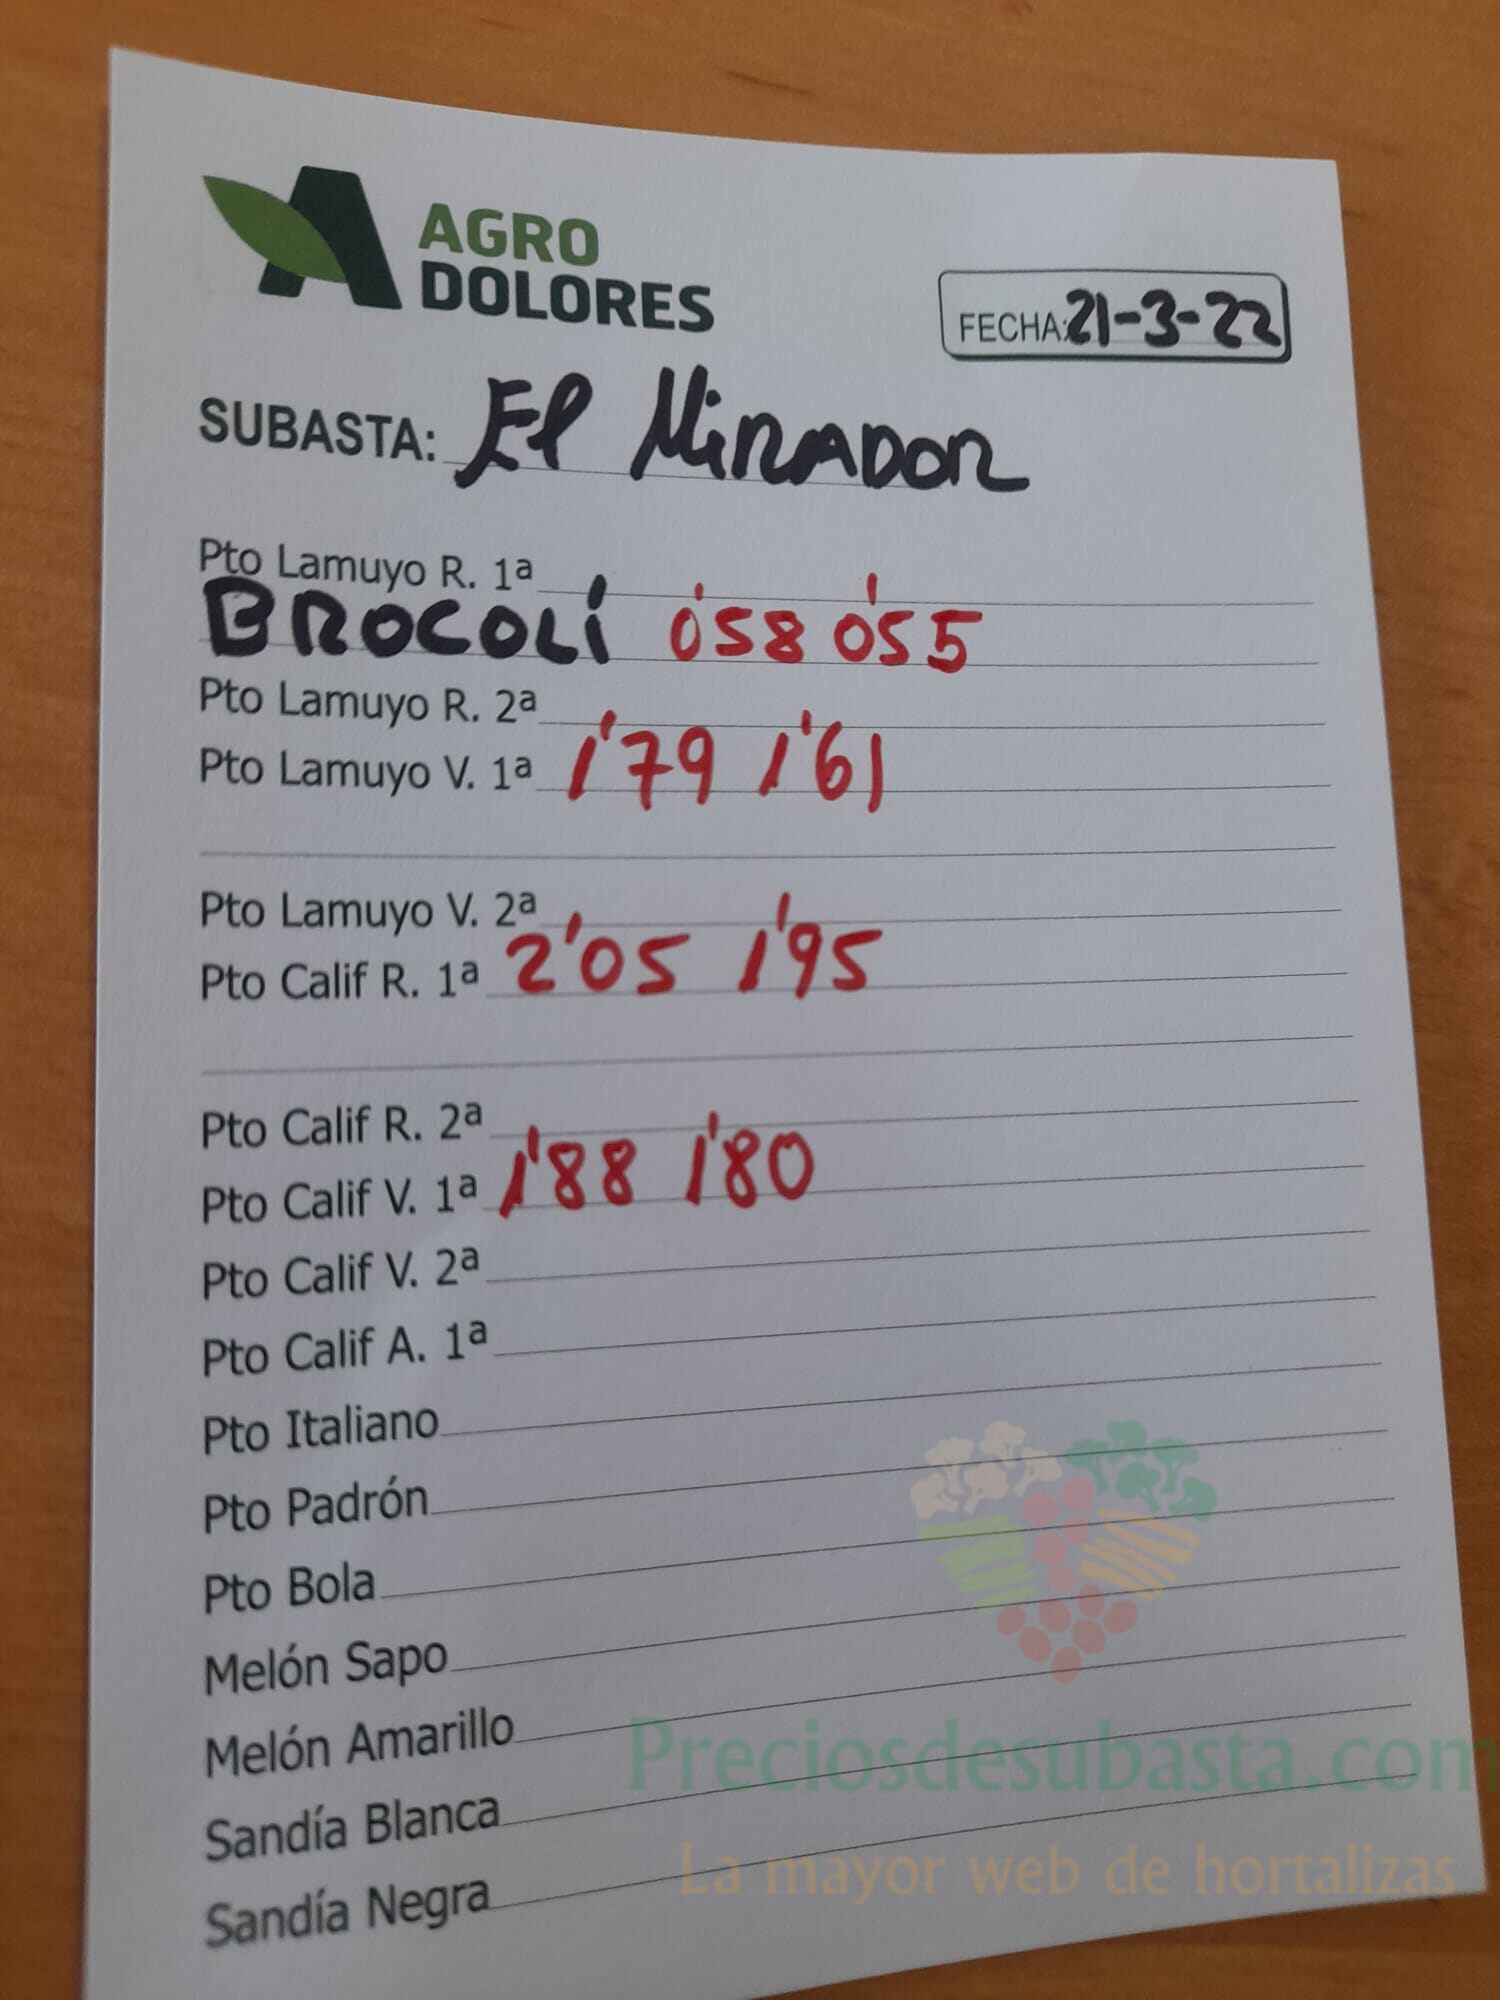 AGRO
DOLORES
FECHA: 21-3-22
SUBASTA: El MiRADOR
Pto Lamuyo R. 1ª
BROCOLÍ 0'58 0'55
Pto Lamuyo R. 2ª
Pto Lamuyo V. 1ª 1'79 1'61
Pto Lamuyo V. 2ª
Pto Calif R. 1ª 2'05 1'95
Pto Calif R. 2ª
Pto Calif V. 1ª 1'88 1'80
Pto Calif V. 2ª
Pto Calif A. 1ª
Pto Italiano
Pto Padrón
Pto Bola
Melón Sapo
Melón Amarillo
Sandía Blanca
Sandía Negra
Preciosdesubasta.com
La mayor web de hortalizas